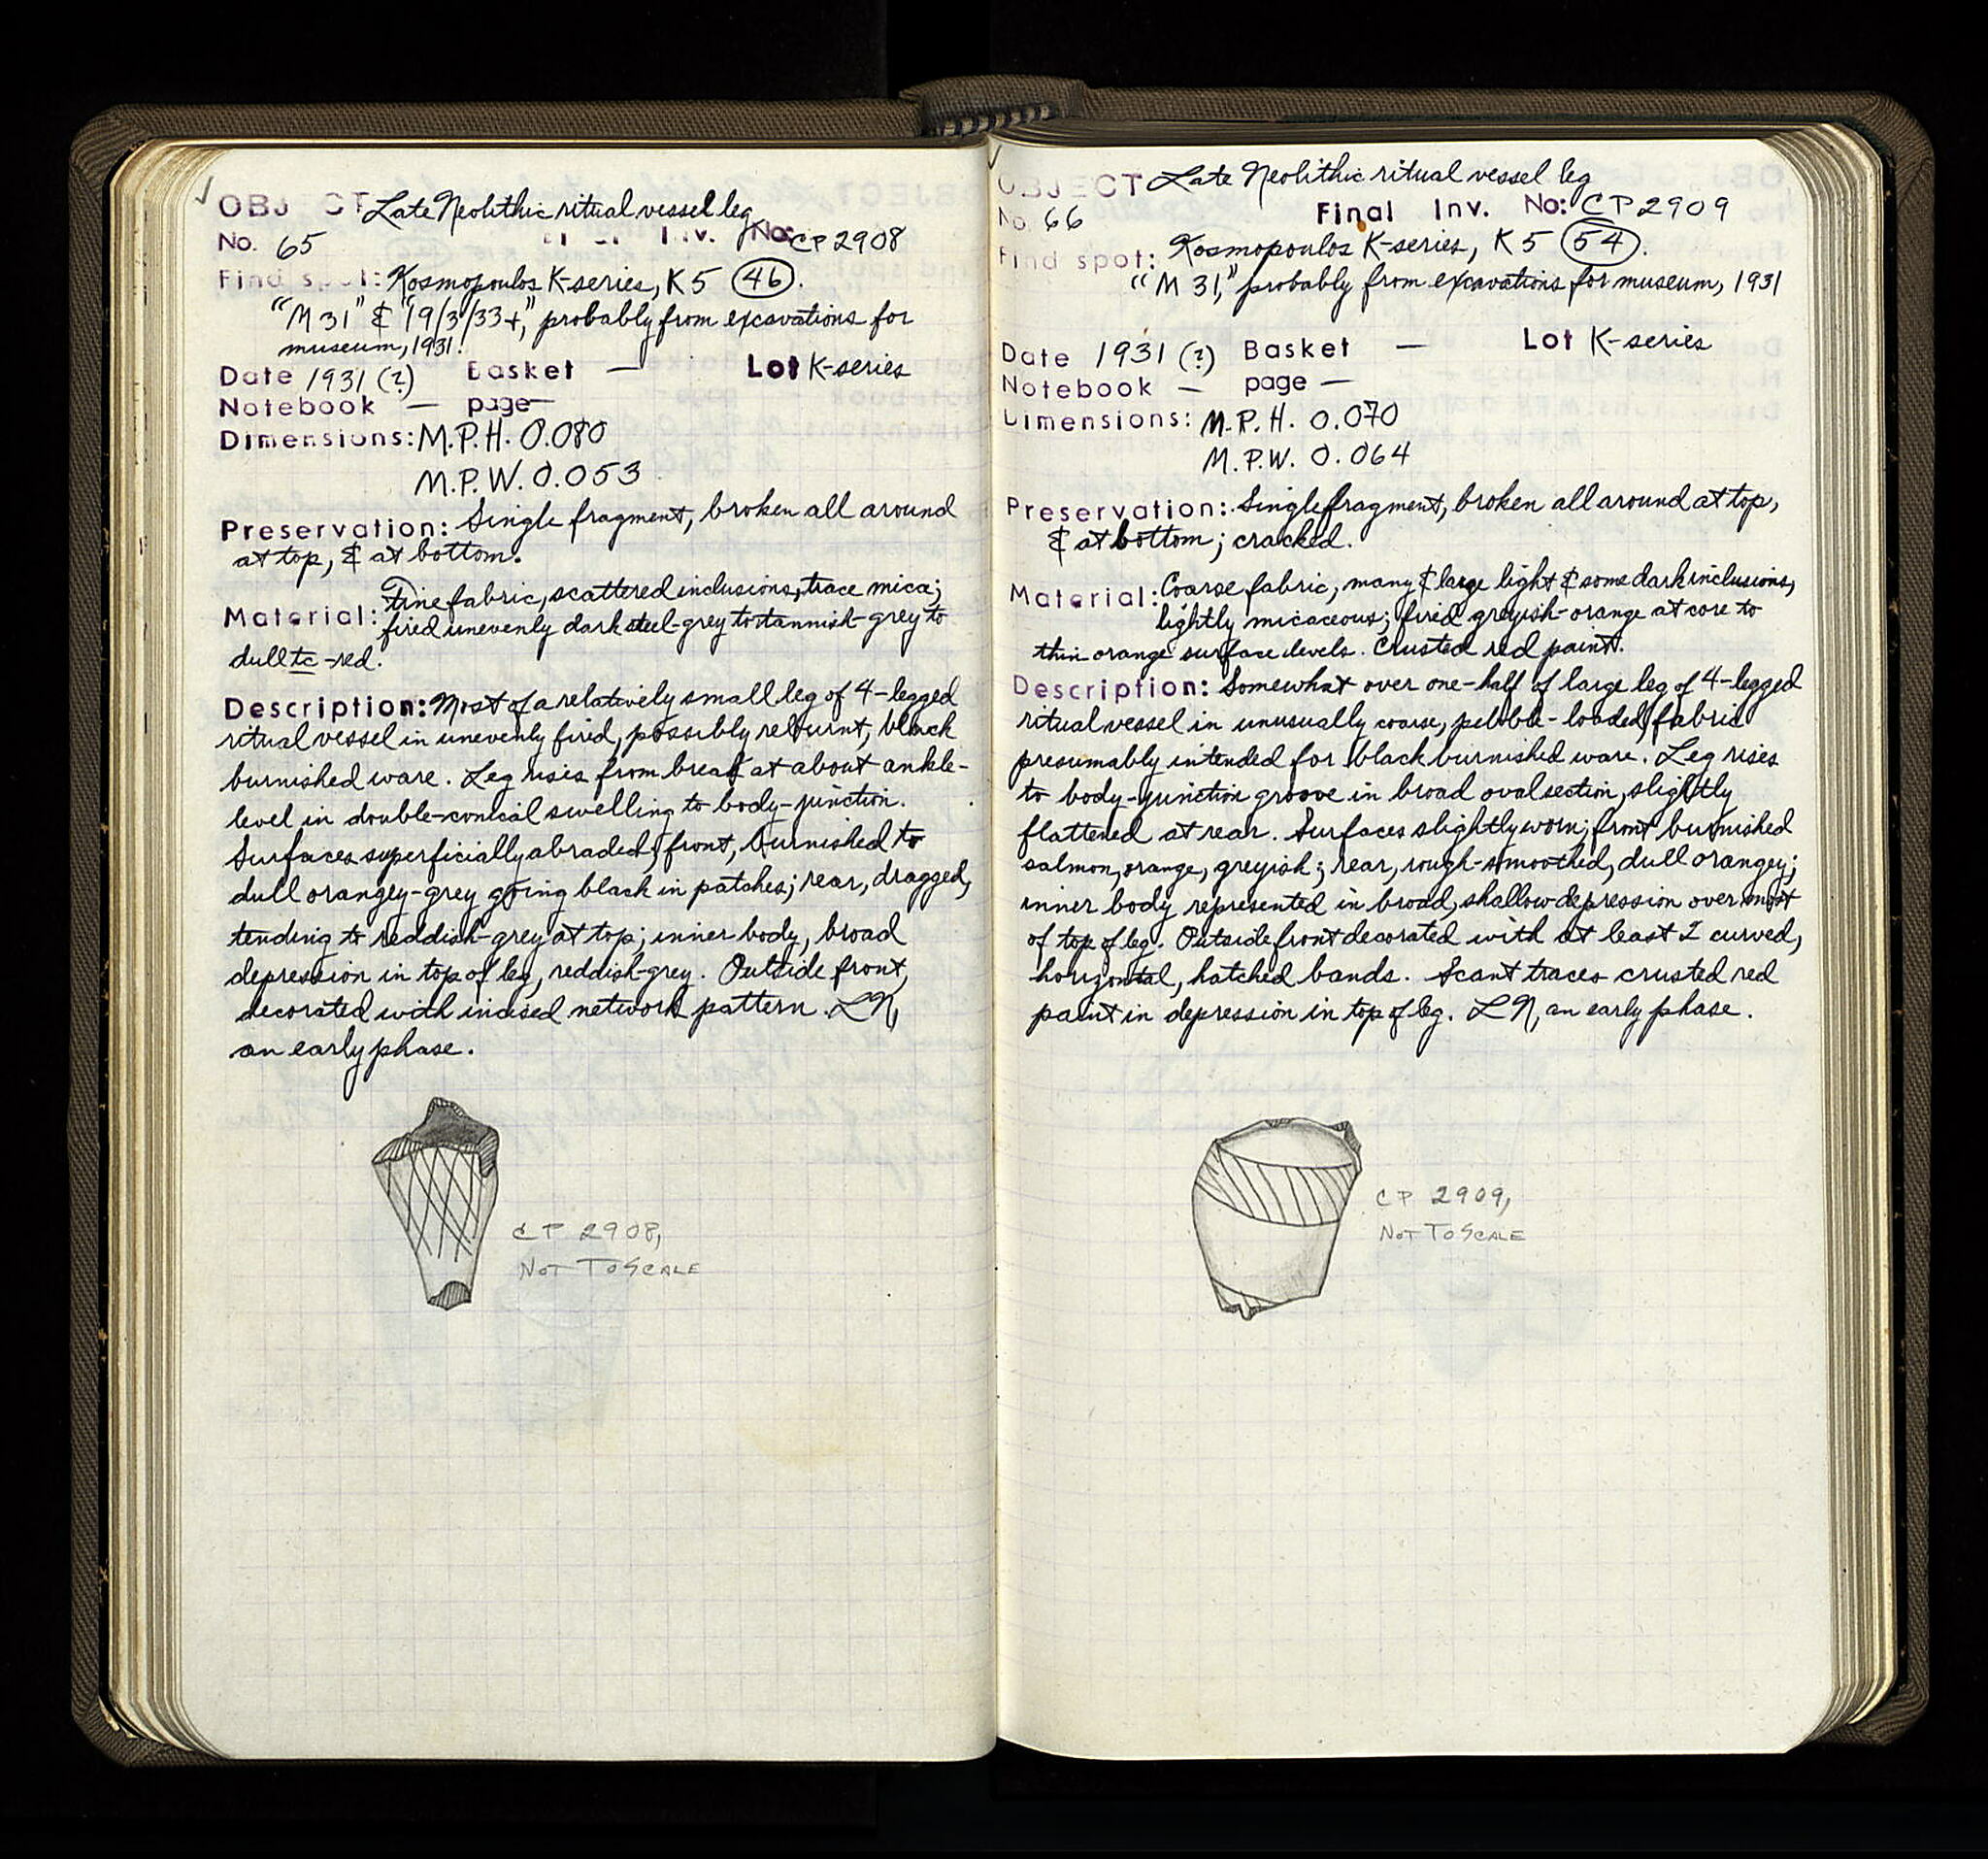 ✓ OBJECT Late Neolithic ritual vessel leg
No. 65 Final Inv. No: CP 2908
Find spot: Kosmopoulos K-series, K 5 (46).
"M 31" & "19/3/33+," probably from excavations for
museum, 1931.
Date 1931 (?) Basket — Lot K-series
Notebook — page —
Dimensions: M.P.H. 0.080
M.P.W. 0.053
Preservation: Single fragment, broken all around
at top, & at bottom.
Material: Fine fabric, scattered inclusions, trace mica;
fired unevenly dark steel-grey to tannish-grey to
dull tc-red.
Description: Most of a relatively small leg of 4-legged
ritual vessel in unevenly fired, possibly reburnt, black
burnished ware. Leg rises from break at about ankle-
level in double-conical swelling to body-junction.
Surfaces superficially abraded; front, burnished to
dull orangey-grey going black in patches; rear, dragged,
tending to reddish-grey at top; inner body, broad
depression in top of leg, reddish-grey. Outside front,
decorated with incised network pattern. LN,
an early phase.
CP 2908,
NOT TO SCALE
✓ OBJECT Late Neolithic ritual vessel leg
No. 66 Final Inv. No: CP 2909
Find spot: Kosmopoulos K-series, K 5 (54).
"M 31," probably from excavations for museum, 1931
Date 1931 (?) Basket — Lot K-series
Notebook — page —
Dimensions: M.P.H. 0.070
M.P.W. 0.064
Preservation: Single fragment, broken all around at top,
& at bottom; cracked.
Material: Coarse fabric, many & large light & some dark inclusions,
lightly micaceous; fired greyish-orange at core to
thin orange surface levels. Crusted red paint.
Description: Somewhat over one-half of large leg of 4-legged
ritual vessel in unusually coarse, pebble-loaded fabric
presumably intended for black burnished ware. Leg rises
to body-junction groove in broad oval section, slightly
flattened at rear. Surfaces slightly worn; front burnished
salmon, orange, greyish; rear, rough-smoothed, dull orangey;
inner body represented in broad, shallow depression over most
of top of leg. Outside front decorated with at least 2 curved,
horizontal, hatched bands. Scant traces crusted red
paint in depression in top of leg. LN, an early phase.
CP 2909,
NOT TO SCALE